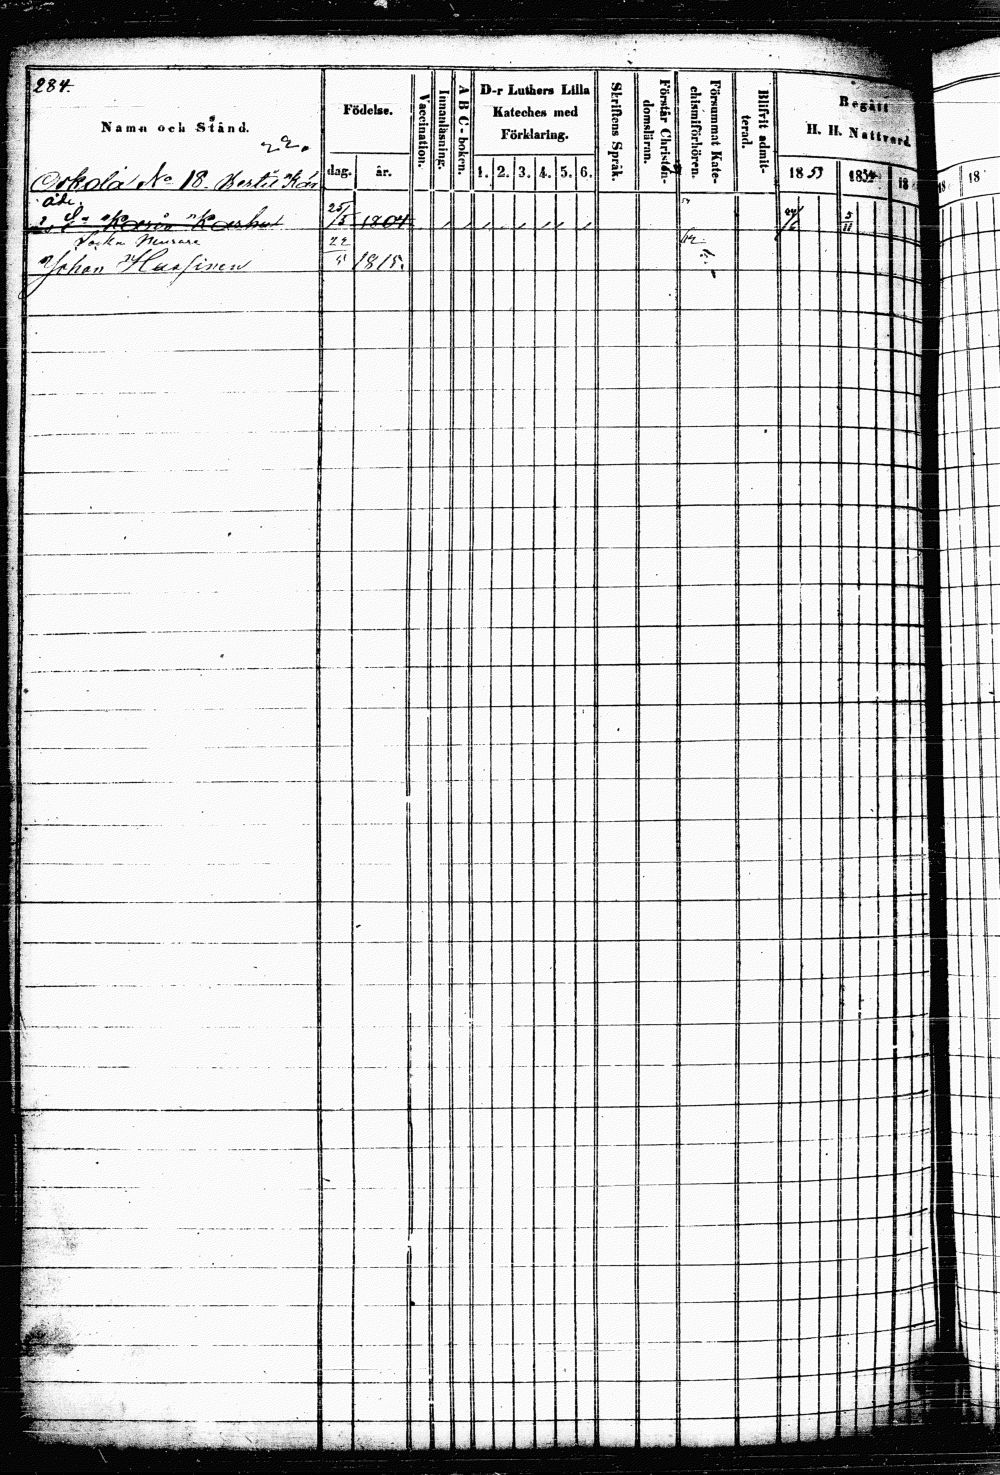 284.
Namn och Stånd.
22.
Födelse.
dag. år.
Vaccination.
Innanläsning.
A B C-boken.
D-r Luthers Lilla
Kateches med
Förklaring.
1. 2. 3. 4. 5. 6.
Skriftens Språk.
Förstår Christen-
domsläran.
Försummat Kate-
chismiförhören.
Blifvit admit-
terad.
Begått
H. H. Nattvard
1853 1854 18
18 18
No 18.
25/5 1804
Johan 22/5 1815.